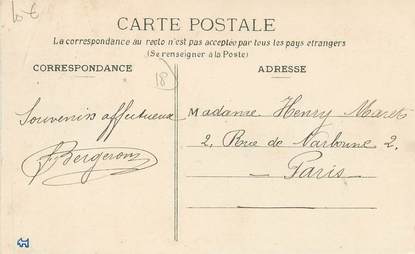 10 €
CARTE POSTALE
La correspondance au recto n'est pas acceptée par tous les pays étrangers
(Se renseigner à la Poste)
CORRESPONDANCE
18
ADRESSE
Souvenirs affectueux
Bergeron
Madame Henry Maret
2, Rue de Narbonne 2.
— Paris —